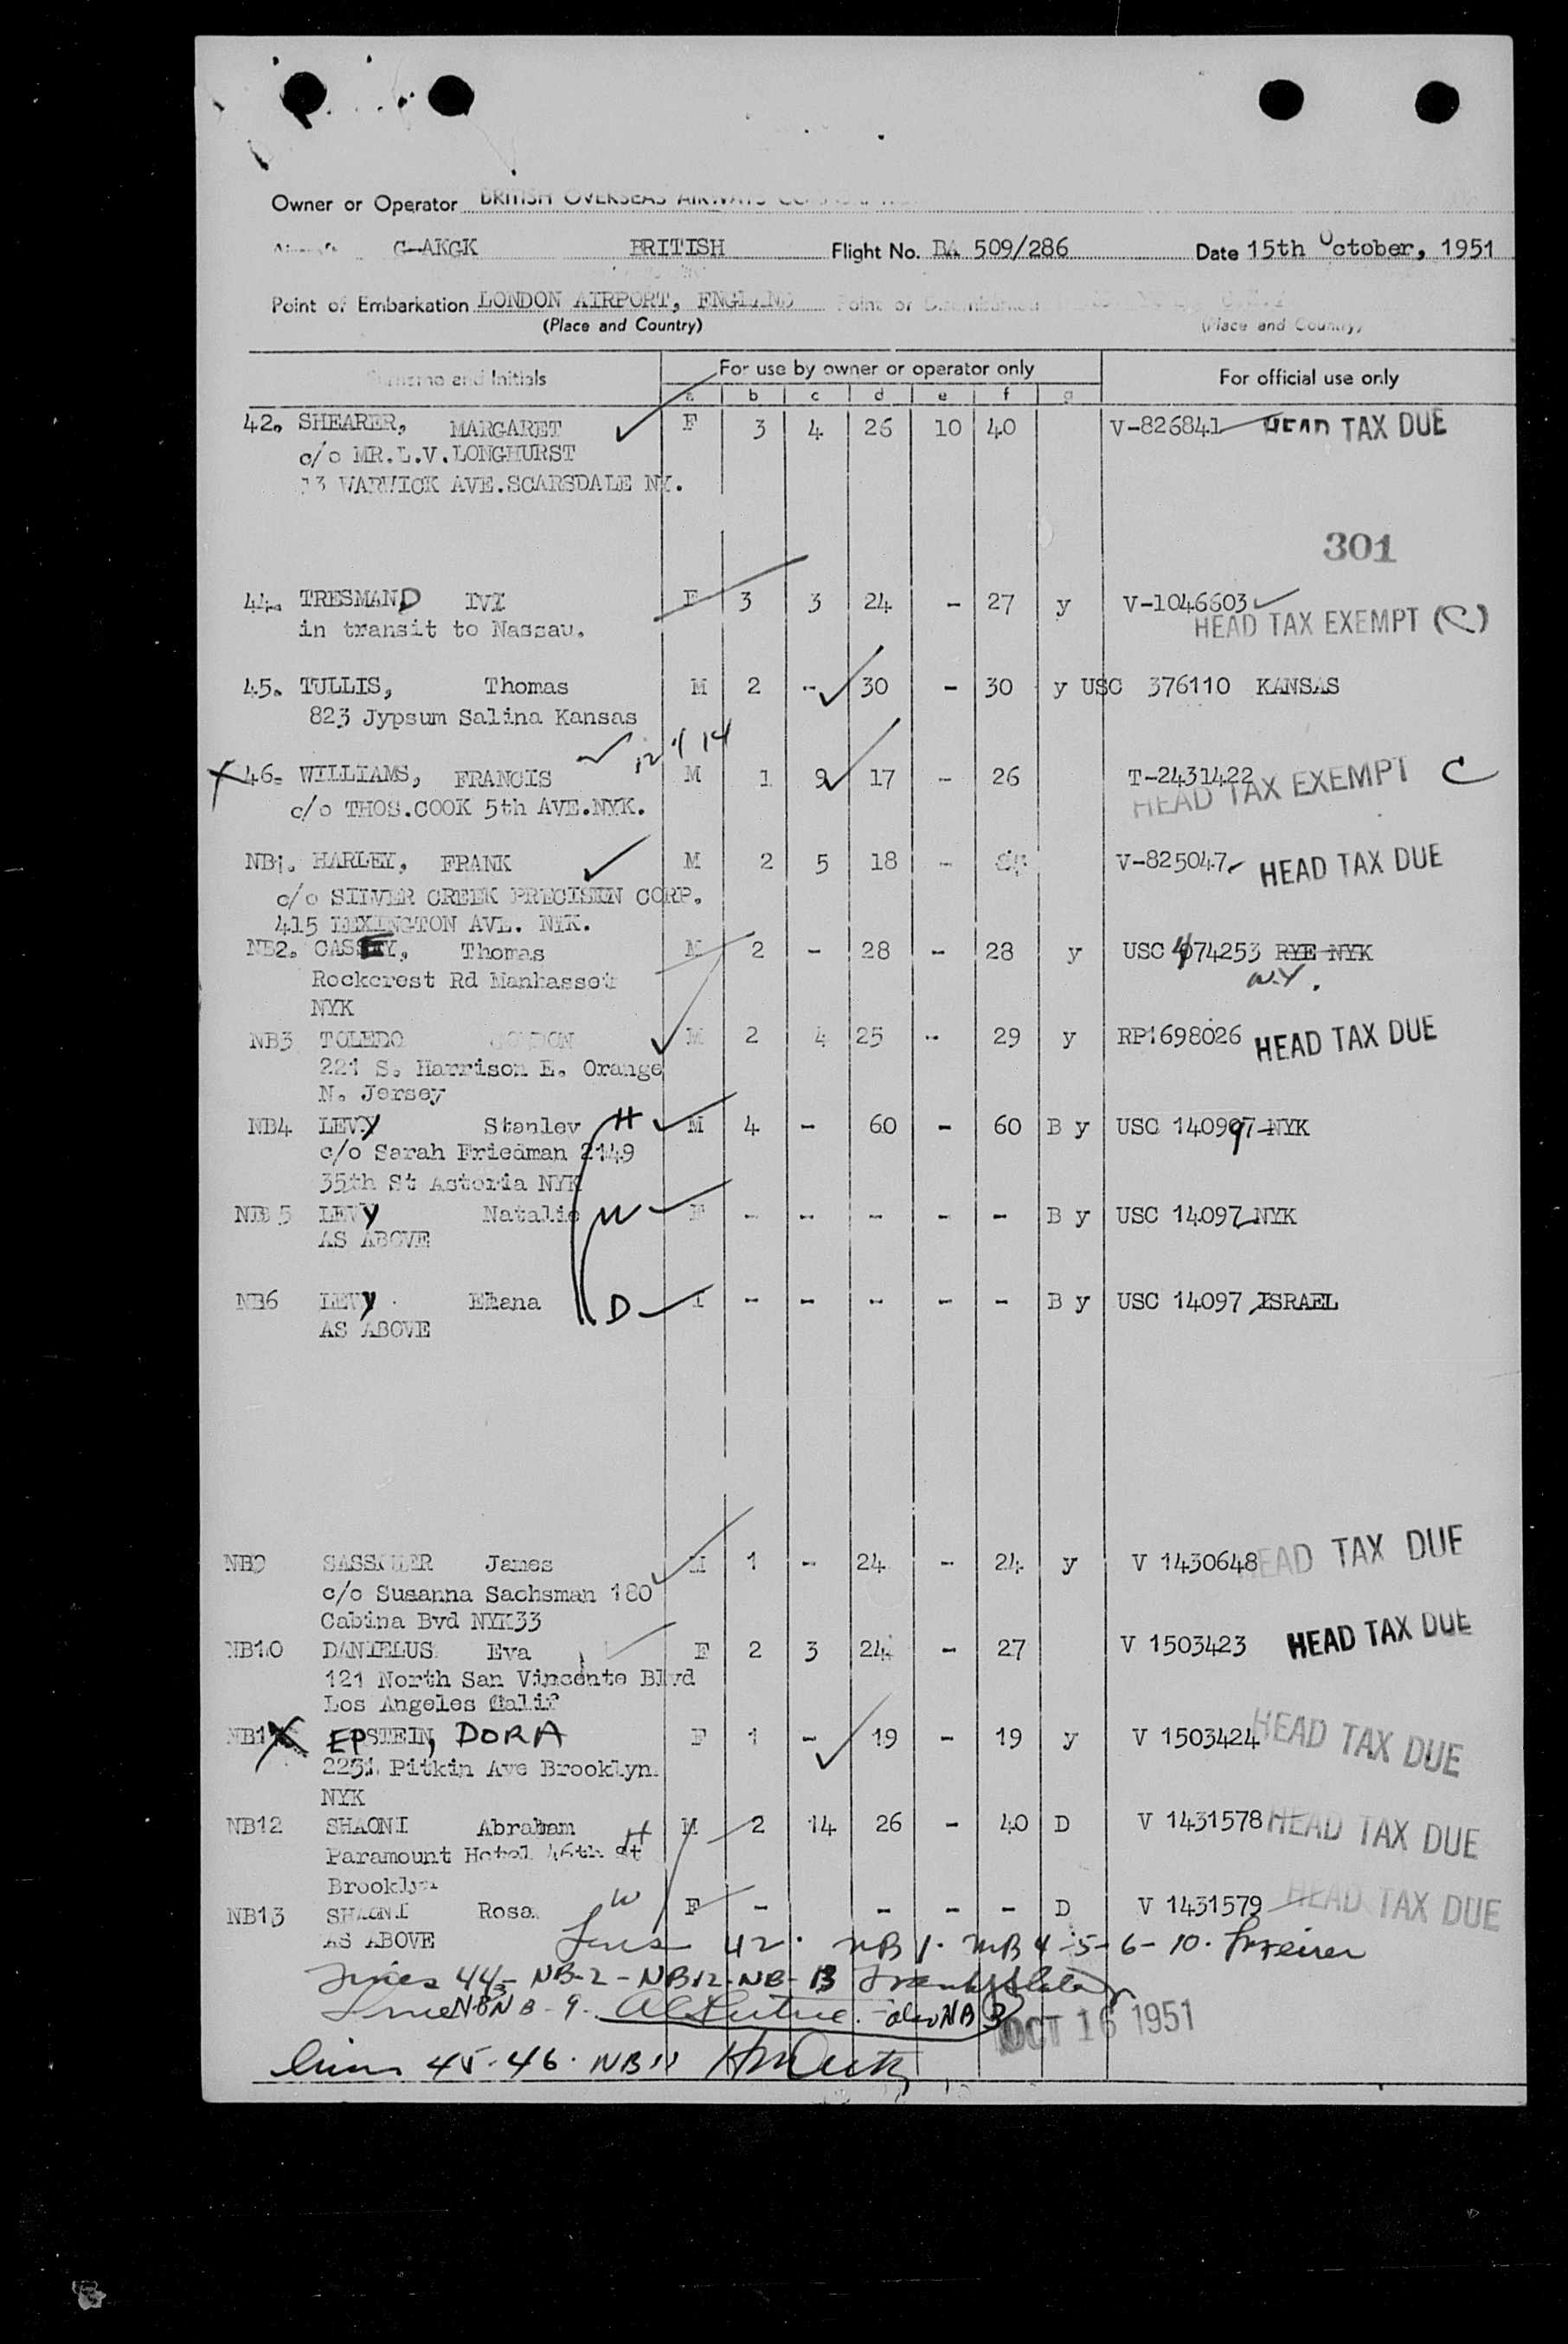 Owner or Operator BRITISH OVERSEAS AIRWAYS
G-AKGK BRITISH Flight No. BA 509/286 Date 15th October, 1951
Point of Embarkation LONDON AIRPORT, ENGLAND Point of Disembarkation
(Place and Country) (Place and Country)
Surname and Initials For use by owner or operator only For official use only
a b c d e f g
42. SHEARER, MARGARET F 3 4 26 10 40 V-826841 HEAD TAX DUE
c/o MR.L.V.LONGHURST
13 WARWICK AVE.SCARSDALE NY.
301
44. TRESMAND IVY F 3 3 24 - 27 y V-1046603
in transit to Nassau. HEAD TAX EXEMPT (C)
45. TULLIS, Thomas M 2 - 30 - 30 y USC 376110 KANSAS
823 Jypsum Salina Kansas
46. WILLIAMS, FRANCIS M 1 9 17 - 26 T-2431422
c/o THOS.COOK 5th AVE.NYK. HEAD TAX EXEMPT C
NB1. HARLEY, FRANK M 2 5 18 - V-825047 HEAD TAX DUE
c/o SILVER CREEK PRECISIN CORP.
415 LEXINGTON AVE. NYK.
NB2. Thomas M 2 - 28 - 28 y USC 74253 RYE NYK
Rockcrest Rd Manhasset N.Y.
NYK
NB3 TOLEDO GORDON M 2 4 25 - 29 y RP1698026 HEAD TAX DUE
221 S. Harrison E. Orange
N. Jersey
NB4 LEVY Stanley H M 4 - 60 - 60 B y USC 14097 NYK
c/o Sarah Friedman 2149
35th St Astoria NYK
NB5 LEVY Natalie W F - - - - - B y USC 14097 NYK
AS ABOVE
NB6 LEVY Ehana D - - - - - B y USC 14097 ISRAEL
AS ABOVE
NB9 James M 1 - 24 - 24 y V 1430648 HEAD TAX DUE
c/o Susanna Sachsman 180
Cabina Bvd NYK33
NB10 DANIELUS Eva F 2 3 24 - 27 V 1503423 HEAD TAX DUE
121 North San Vincente Blvd
Los Angeles Calif
NB1 EPSTEIN, DORA F 1 - 19 - 19 y V 1503424 HEAD TAX DUE
Pitkin Ave Brooklyn
NYK
NB12 SHAONI Abraham H M 2 14 26 - 40 D V 1431578 HEAD TAX DUE
Paramount Hotel 46th St
Brooklyn
NB13 SHAONI Rosa W F - - - - D V 1431579 HEAD TAX DUE
AS ABOVE
Lines 42. NB 1. NB 4-5-6-10.
Lines 44- NB-2-NB12-NB-13
Line NB-9. also NB 3
OCT 16 1951
Lines 45.46. NB11